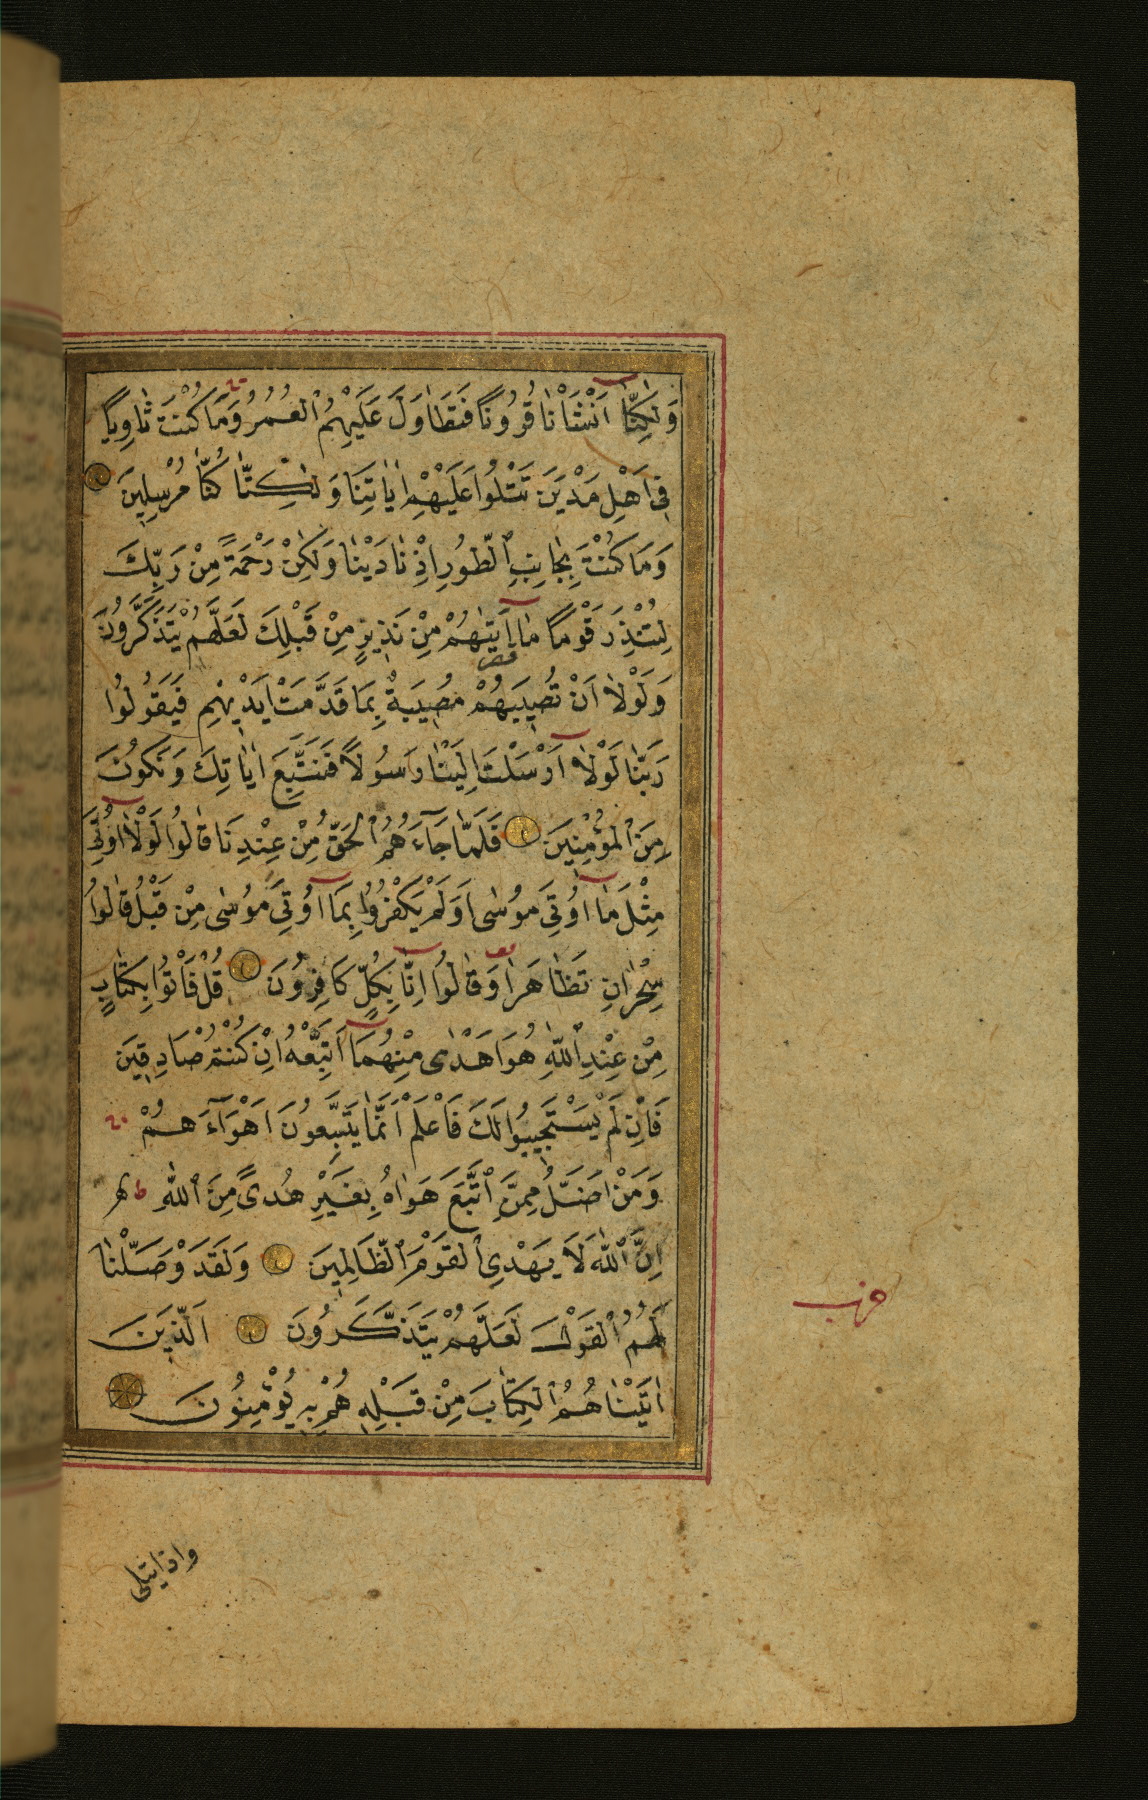 وَلٰكِنَّا اَنْشَاْنَا قُرُونًا فَتَطَاوَلَ عَلَيْهِمُ الْعُمُرُ وَمَا كُنْتَ ثَاوِيًا
فِى اَهْلِ مَدْيَنَ تَتْلُوا عَلَيْهِمْ اٰيَاتِنَا وَلٰكِنَّا كُنَّا مُرْسِلِينَ
وَمَا كُنْتَ بِجَانِبِ الطُّورِ اِذْ نَادَيْنَا وَلٰكِنْ رَحْمَةً مِنْ رَبِّكَ
لِتُنْذِرَ قَوْمًا مَا اَتٰيهُمْ مِنْ نَذِيرٍ مِنْ قَبْلِكَ لَعَلَّهُمْ يَتَذَكَّرُونَ
وَلَوْلَا اَنْ تُصِيبَهُمْ مُصِيبَةٌ بِمَا قَدَّمَتْ اَيْدِيهِمْ فَيَقُولُوا
رَبَّنَا لَوْلَا اَرْسَلْتَ اِلَيْنَا رَسُولًا فَنَتَّبِعَ اٰيَاتِكَ وَنَكُونَ
مِنَ الْمُؤْمِنِينَ فَلَمَّا جَآءَهُمُ الْحَقُّ مِنْ عِنْدِنَا قَالُوا لَوْلَا اُوتِىَ
مِثْلَ مَا اُوتِىَ مُوسٰى اَوَلَمْ يَكْفُرُوا بِمَا اُوتِىَ مُوسٰى مِنْ قَبْلُ قَالُوا
سِحْرَانِ تَظَاهَرَا وَقَالُوا اِنَّا بِكُلٍّ كَافِرُونَ قُلْ فَاْتُوا بِكِتَابٍ
مِنْ عِنْدِ اللّٰهِ هُوَ اَهْدٰى مِنْهُمَا اَتَّبِعْهُ اِنْ كُنْتُمْ صَادِقِينَ
فَاِنْ لَمْ يَسْتَجِيبُوا لَكَ فَاعْلَمْ اَنَّمَا يَتَّبِعُونَ اَهْوَآءَهُمْ
وَمَنْ اَضَلُّ مِمَّنِ اتَّبَعَ هَوَاهُ بِغَيْرِ هُدًى مِنَ اللّٰهِ ط
اِنَّ اللّٰهَ لَا يَهْدِى الْقَوْمَ الظَّالِمِينَ وَلَقَدْ وَصَّلْنَا
لَهُمُ الْقَوْلَ لَعَلَّهُمْ يَتَذَكَّرُونَ اَلَّذِينَ
اٰتَيْنَاهُمُ الْكِتَابَ مِنْ قَبْلِهِ هُمْ بِهِ يُؤْمِنُونَ
حزب
واذا يتلى